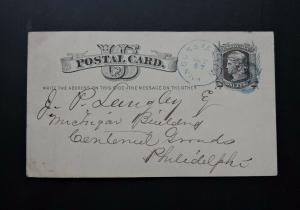 POSTAL CARD.
WRITE THE ADDRESS ON THIS SIDE - THE MESSAGE ON THE OTHER
J. P. Langley
Michigan Building
Centenial Grounds
Philidelphi